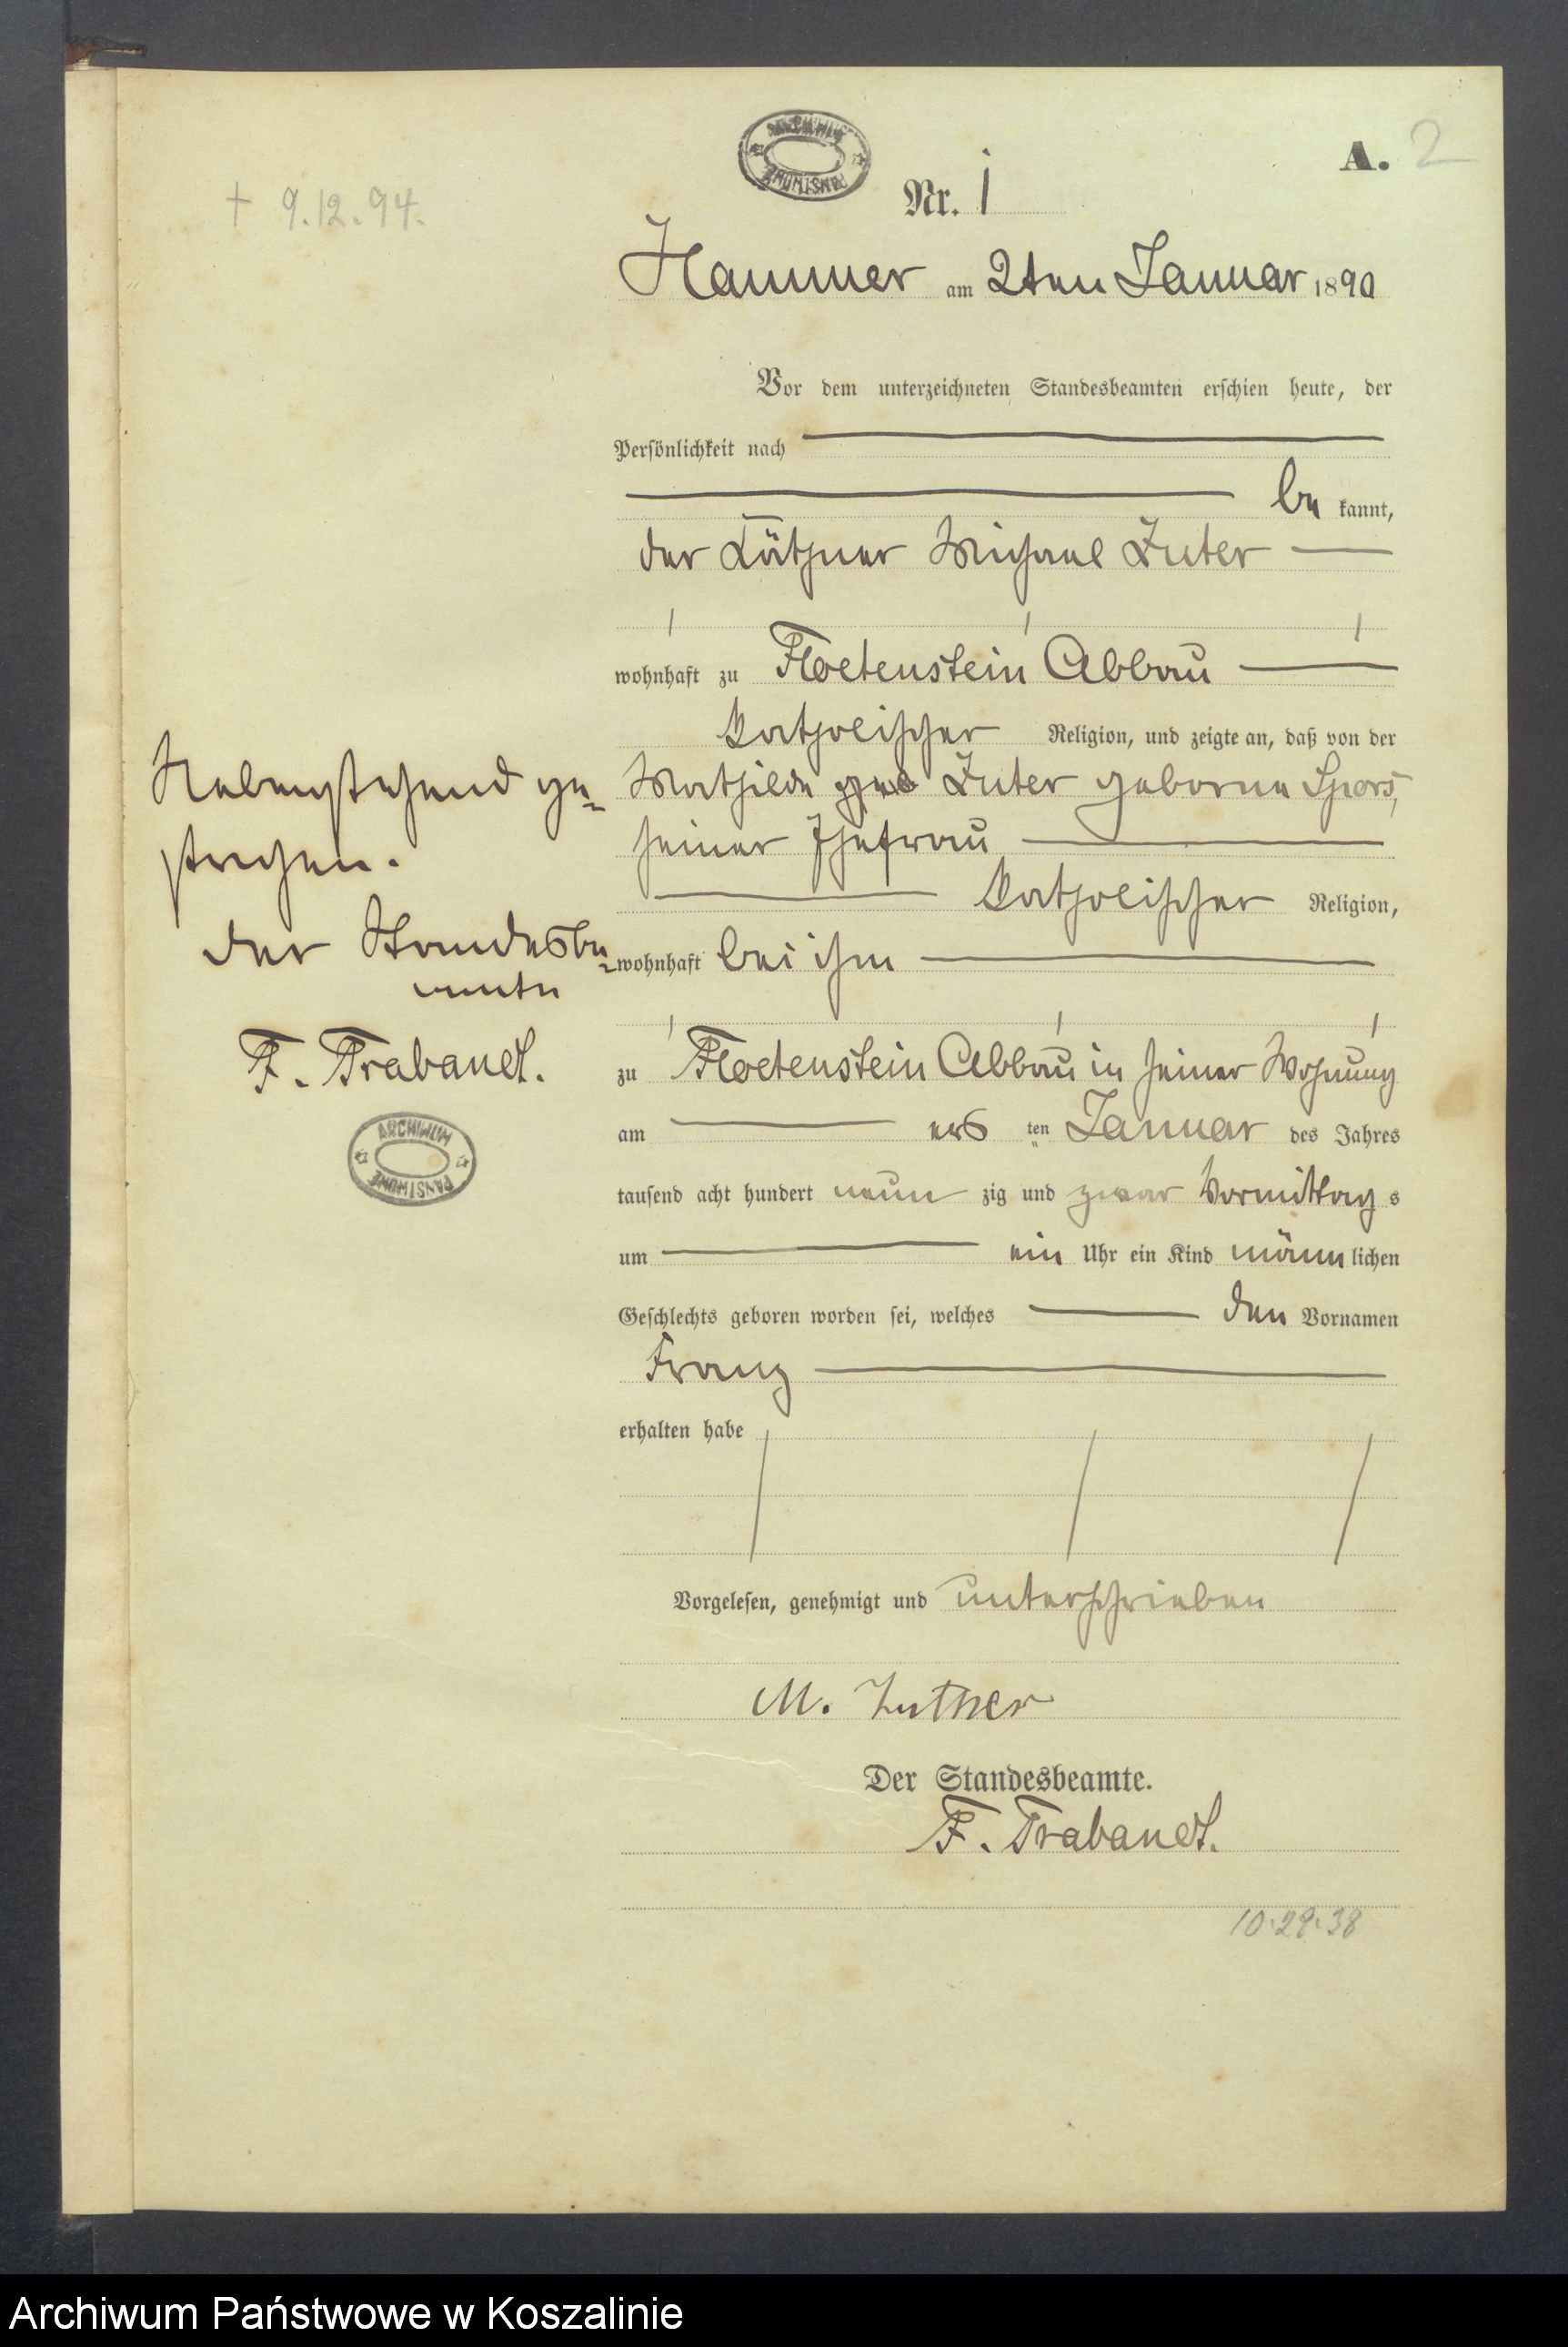 A. 2
ARCHIWUM PAŃSTWOWE
† 9.12.94.
Nr. 1
Hammer am 2ten Januar 1890
Vor dem unterzeichneten Standesbeamten erschien heute, der
Persönlichkeit nach
be kannt,
der Käthner Michael Luter
wohnhaft zu Floetenstein Abbau
katholischer Religion, und zeigte an, daß von der
Mathilde Luter geborne Spors,
seiner Ehefrau
katholischer Religion,
wohnhaft bei ihm
zu Floetenstein Abbau in seiner Wohnung
am ers ten Januar des Jahres
tausend acht hundert neun zig und zwar Vormittag s
um ein Uhr ein Kind männ lichen
Geschlechts geboren worden sei, welches den Vornamen
Franz
erhalten habe
Vorgelesen, genehmigt und unterschrieben
M. Luther
Der Standesbeamte.
F. Trabandt.
10.29.38
Nebenstehend ge=
strichen.
der Standesbe=
amte
F. Trabandt.
ARCHIWUM PAŃSTWOWE
Archiwum Państwowe w Koszalinie